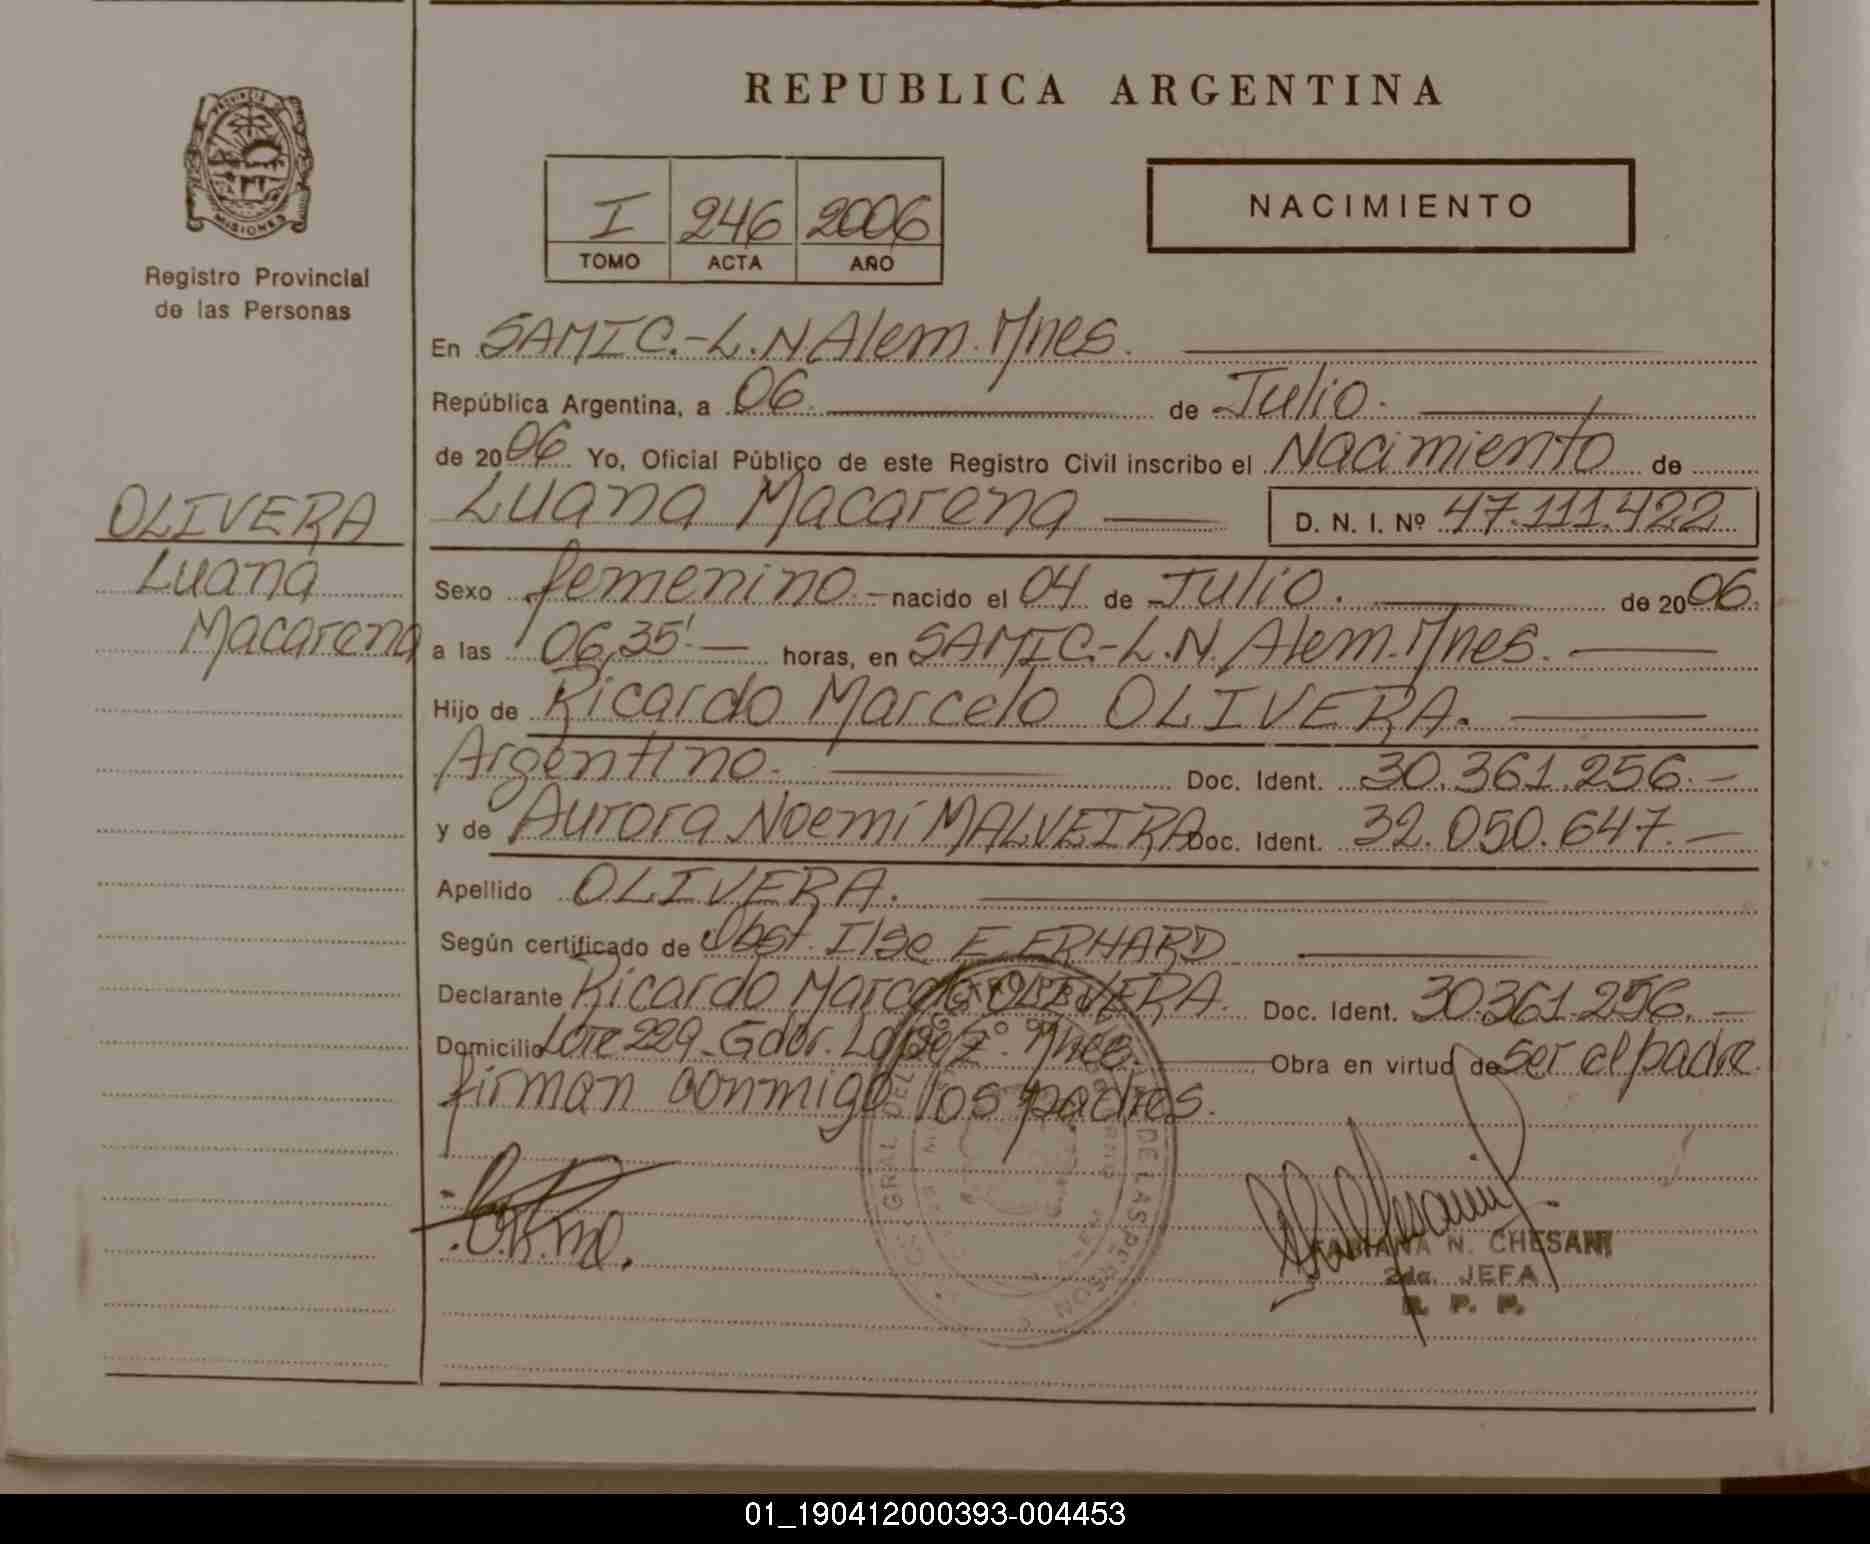 REPUBLICA ARGENTINA
PROVINCIA
MISIONES
Registro Provincial
de las Personas
I 246 2006
TOMO ACTA AÑO
NACIMIENTO
En SAMIC.-L.N Alem. Mnes.
República Argentina, a 06. de Julio.
de 2006 Yo, Oficial Público de este Registro Civil inscribo el Nacimiento de
Luana Macarena D. N. I. Nº 47.111.422
OLIVERA
Luana
Macarena
Sexo femenino.- nacido el 04 de Julio. de 2006.
a las 06,35'.- horas, en SAMIC.-L.N. Alem. Mnes.
Hijo de Ricardo Marcelo OLIVERA.
Argentino. Doc. Ident. 30.361.256.-
y de Aurora Noemí MALVEIRA Doc. Ident. 32.050.647.-
Apellido OLIVERA.
Según certificado de Obst. Ilse E. ERHARD
Declarante Ricardo Marcelo OLIVERA. Doc. Ident. 30.361.256.-
Domicilio Lote 229-Gdor. López. Mnes. Obra en virtud de ser el padre
firman conmigo los padres.
GRAL DEL DE LAS PERSON
FABIANA N. CHESANI
2da. JEFA
R. P. P.
01_190412000393-004453